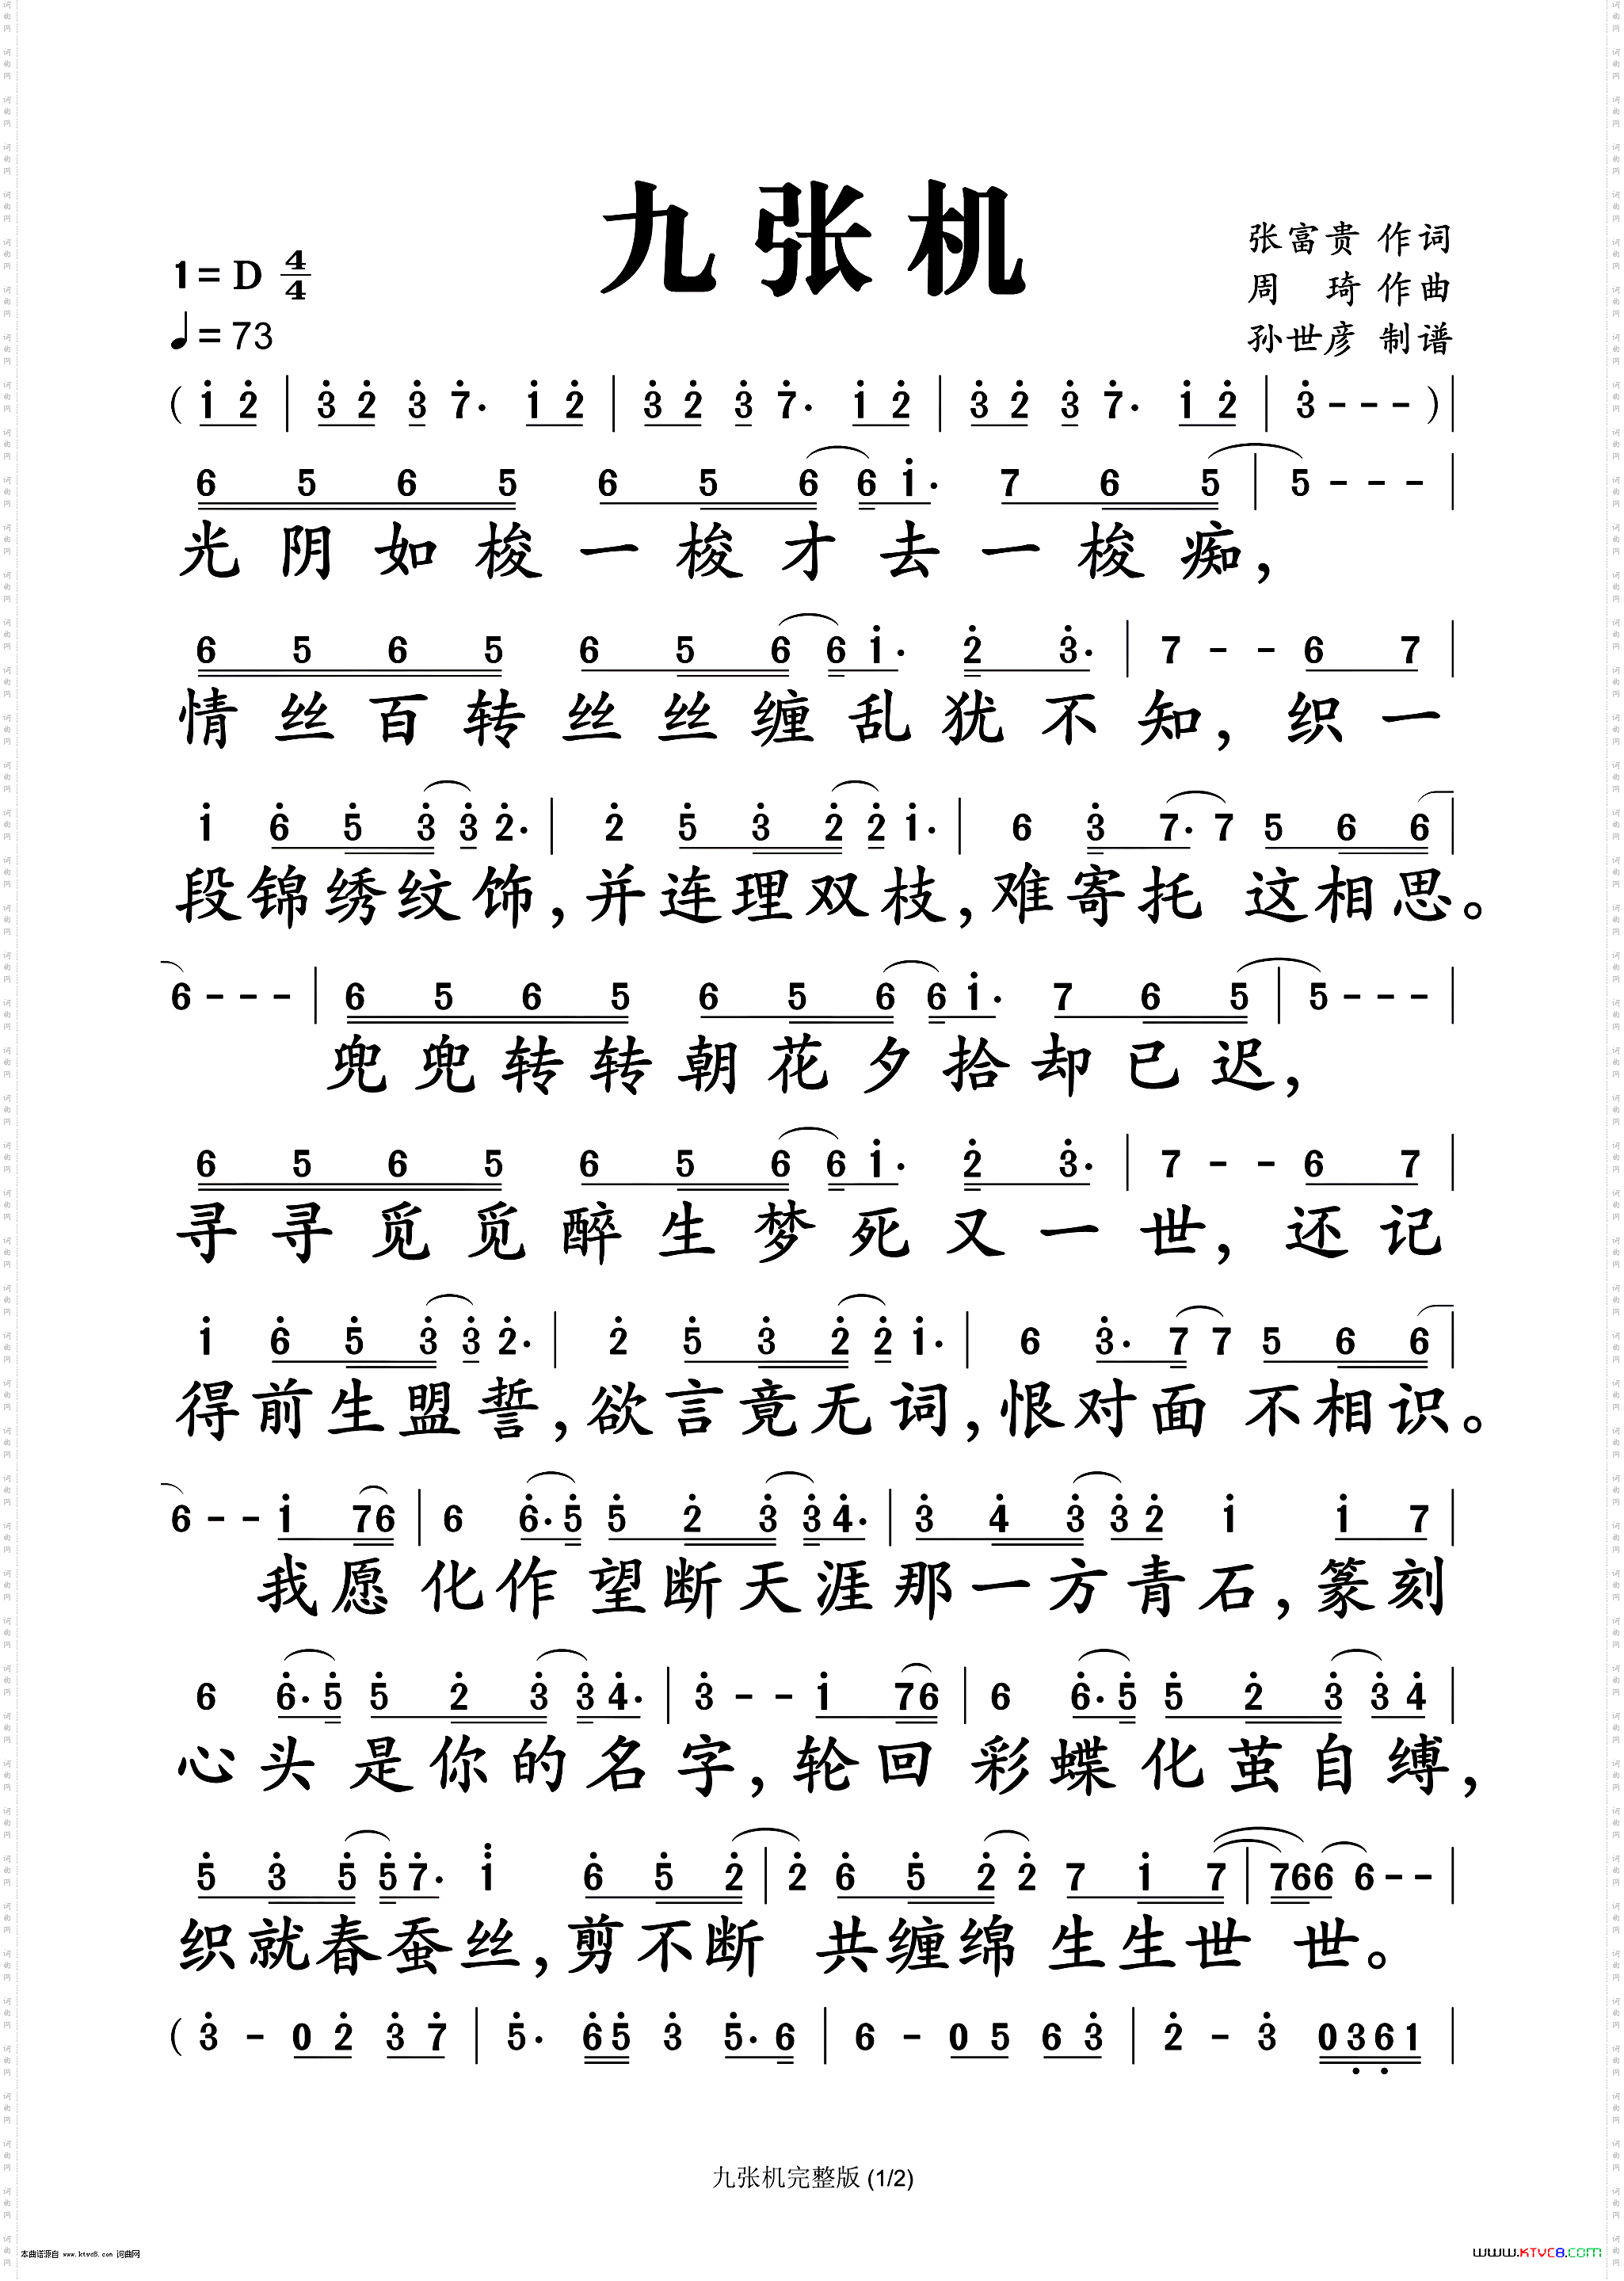 九张机
1=D 4/4
♩=73
张富贵 作词
周 琦 作曲
孙世彦 制谱
( i̇ 2̇ | 3̇ 2̇ 3̇ 7̇. i̇ 2̇ | 3̇ 2̇ 3̇ 7̇. i̇ 2̇ | 3̇ 2̇ 3̇ 7̇. i̇ 2̇ | 3̇ - - - ) |
6 5 6 5 6 5 6 6 i̇. 7 6 5 | 5 - - - |
光阴如梭一梭才去一梭痴，
6 5 6 5 6 5 6 6 i̇. 2̇ 3̇. | 7 - - 6 7 |
情丝百转丝丝缠乱犹不知，织一
i̇ 6̇ 5̇ 3̇ 3̇ 2̇. | 2̇ 5̇ 3̇ 2̇ 2̇ i̇. | 6 3̇ 7. 7 5 6 6 |
段锦绣纹饰，并连理双枝，难寄托 这相思。
6 - - - | 6 5 6 5 6 5 6 6 i̇. 7 6 5 | 5 - - - |
兜兜转转朝花夕拾却已迟，
6 5 6 5 6 5 6 6 i̇. 2̇ 3̇. | 7 - - 6 7 |
寻寻觅觅醉生梦死又一世，还记
i̇ 6̇ 5̇ 3̇ 3̇ 2̇. | 2̇ 5̇ 3̇ 2̇ 2̇ i̇. | 6 3̇. 7 7 5 6 6 |
得前生盟誓，欲言竟无词，恨对面 不相识。
6 - - i̇ 7 6 | 6 6̇. 5̇ 5̇ 2̇ 3̇ 3̇ 4̇. | 3̇ 4̇ 3̇ 3̇ 2̇ i̇ i̇ 7 |
我愿 化作 望断天涯那一方青石，篆刻
6 6̇. 5̇ 5̇ 2̇ 3̇ 3̇ 4̇. | 3̇ - - i̇ 7 6 | 6 6̇. 5̇ 5̇ 2̇ 3̇ 3̇ 4̇ |
心头 是你的名字，轮回 彩蝶化茧自缚，
5̇ 3̇ 5̇ 5̇ 7̇. i̇̇ 6̇ 5̇ 2̇ | 2̇ 6̇ 5̇ 2̇ 2̇ 7 i̇ 7 | 7 6 6 6 - - |
织就春蚕丝，剪不断 共缠绵 生生世 世。
( 3̇ - 0 2̇ 3̇ 7̇ | 5̇. 6̇ 5̇ 3̇ 5̇. 6 | 6 - 0 5 6 3̇ | 2̇ - 3̇ 0 3̣ 6̣ 1 |
九张机完整版 (1/2)
本曲谱源自 www.ktvc8.com 词曲网
www.KTVC8.com